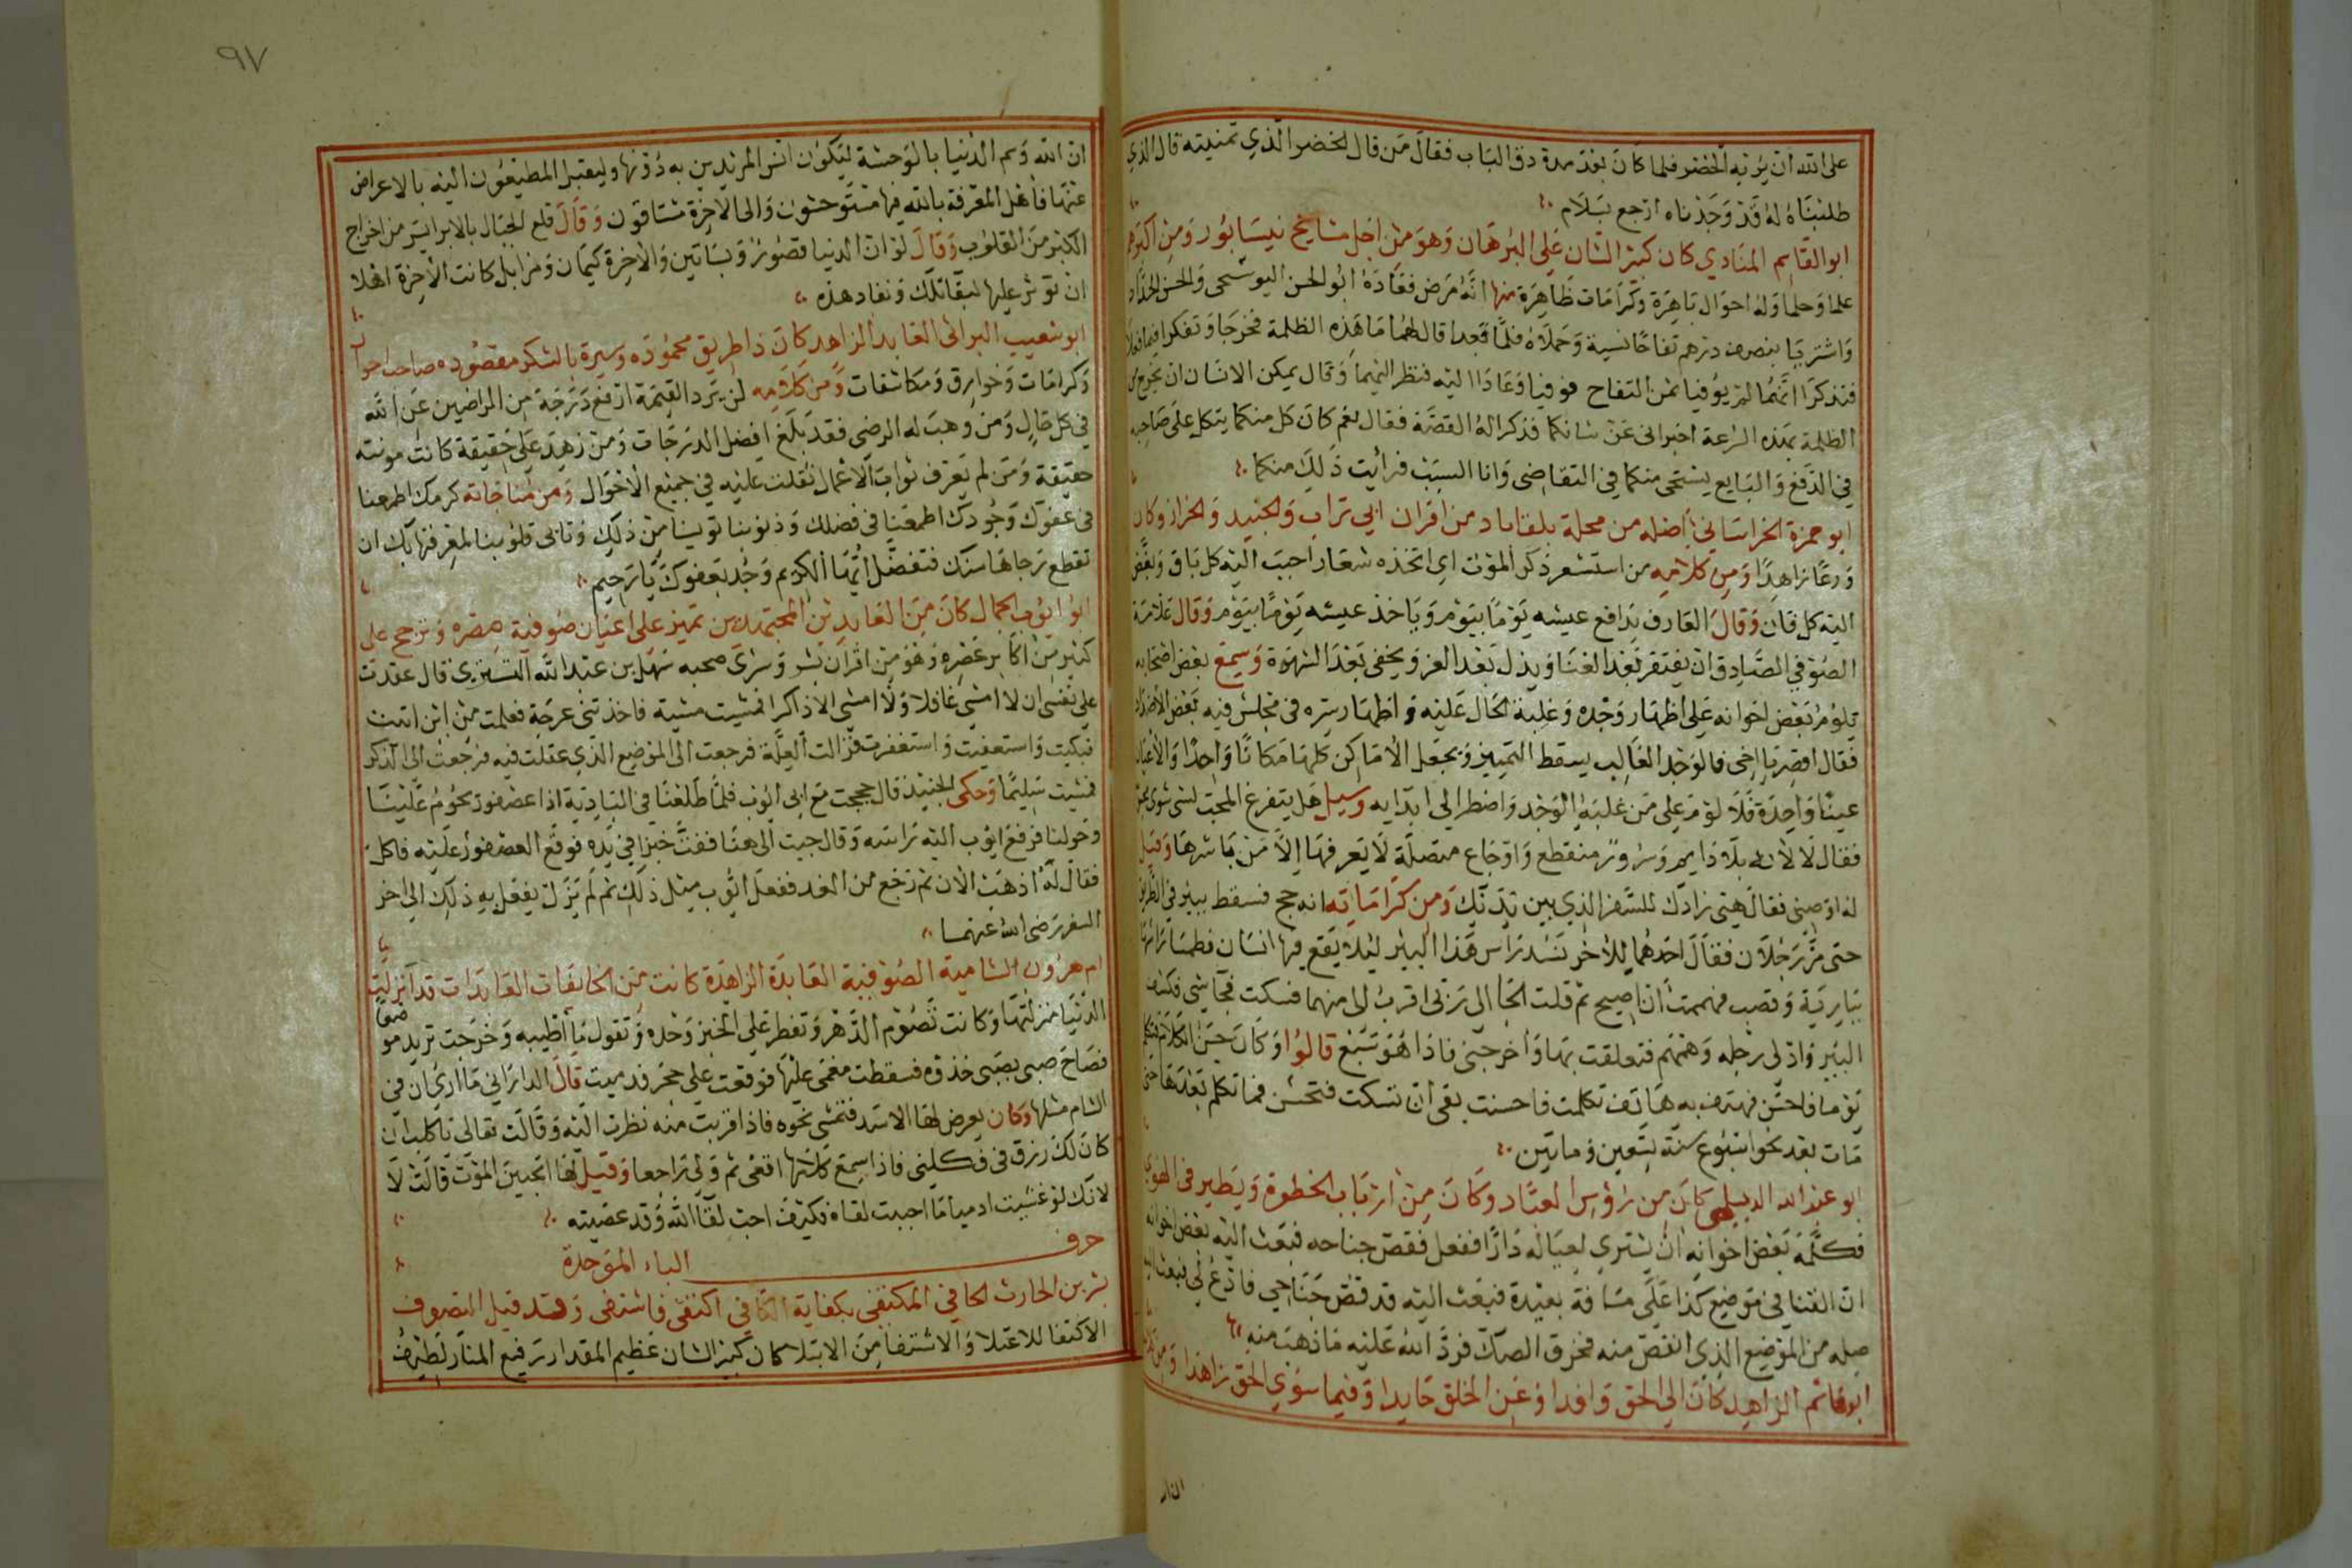 على الله ان يريه الخضر فلما كان بعد مدة دق الباب فقال من قال الخضر الذي تمنيته قال الذي
طلبناه له قد وجدناه ارجع بسلام
ابو القاسم المنادي كان كبير الشان على البرهان وهو من اجل مشايخ نيسابور ومن اكبرهم
علما وحلما وله احوال باهرة وكرامات ظاهرة منها انه مرض فعاده ابو الحسن البوسنجى والحسن الحداد
واشتريا بنصف درهم تفاحا نسية وحملاه فلما قعدا قال لهما ما هذه الظلمة فخرجا وتفكرا فيما فعلا
فتذكرا انهما لم يوفيا ثمن التفاح فوفيا وعادا اليه فنظر اليهما وقال يمكن الانسان ان يخرج من
الظلمة بهذه السرعة اخبراني عن شانكما فذكرا له القصة فقال نعم كان كل منكما يتكل على صاحبه
في الدفع والبايع يستحى منكما في التقاضى وانا السبب فرايت ذلك منكما
ابو حمزة الخراساني اصله من محلة بلقاباد من اقران ابي تراب والجنيد والخراز وكان
ورعا زاهدا ومن كلامه من استشعر ذكر الموت اي اتخذه شعارا حبب اليه كل باق وبغض
اليه كل فان وقال العارف يدافع عيشه يوما بيوم وياخذ عيشه يوما بيوم وقال علامة
الصوفي الصادق ان يفتقر بعد الغنا ويذل بعد العز ويخفى بعد الشهرة وسمع بعض اصحابه
يلوم بعض اخوانه على اظهار وجده وغلبة الحال عليه واظهار سره في مجلس فيه بعض الاضداد
فقال اقصر يا اخي فالوجد الغالب يسقط التمييز ويجعل الاماكن كلها مكانا واحدا والاعيان
عينا واحدة فلا لوم على من غلبه الوجد واضطر الى ابدايه وسيل هل يتفرغ المحب لشى سوى محبوبه
فقال لا لانه بلاء دايم وسرور منقطع واوجاع متصلة لا يعرفها الا من باشرها وقيل
له اوصني فقال هيئ زادك للسفر الذي بين يديك ومن كراماته انه حج فسقط ببير في الطريق
حتى مر رجلان فقال احدهما للاخر نسد راس هذا البير ليلا يقع فيها انسان فطمسا راسها
ببارية وقصب فهممت ان اصيح ثم قلت الجأ الى ربى اقرب الى منهما فسكت فجا شي فكشف
البير وادلى رجله وهمهم فتعلقت بها واخرجنى فاذا هو سبع قالوا وكان حسن الكلام فتكلم
يوما فاحسن فهتف به هاتف تكلمت فاحسنت بقى ان تسكت فتحسن فما تكلم بعدها حتى
مات بعد نحو اسبوع سنة تسعين وماتين
ابو عبد الله الديلمي كان من رؤس العباد وكان من ارباب الخطوة ويطير في الهوى
فكلمه بعض اخوانه ان يشتري لعياله دارا ففعل فقص جناحه فبعث اليه بعض اخوانه
ان القنا في موضع كذا على مسافة بعيدة فبعث اليه قد قص جناحي فادع لي فبعث اليه
صله من الموضع الذي انقص منه فخرق الصك فرد الله عليه ما ذهب منه
ابو هاشم الزاهد كان الى الحق وافدا وعن الخلق حايدا وفيما سوى الحق زاهدا ومن كلامه
٩٧
ان الله وسم الدنيا بالوحشة ليكون انس المريدين به دونها وليقبل المطيعون اليه بالاعراض
عنها فاهل المعرفة بالله فيها مستوحشون والى الاخرة مشتاقون وقال قلع الجبال بالابر ايسر من اخراج
الكبر من القلوب وقال لو ان الدنيا قصور وبساتين والاخرة كيمان ومزابل كانت الاخرة اهلا
ان توثر عليها لبقاتلك ونفاد هذه
ابو شعيب البراثي العابد الزاهد كان ذا طريق محموده وسيرة بالشكر مقصوده صاحب احوال
وكرامات وخوارق ومكاشفات ومن كلامه لن يرد القيمة ارفع درجة من الراضين عن الله
في كل حال ومن وهب له الرضى فقد بلغ افضل الدرجات ومن زهد على حقيقة كانت مونته
حقيقة ومن لم يعرف ثواب الاعمال ثقلت عليه في جميع الاحوال ومن مناجاته كرمك اطمعنا
في عفوك وجودك اطمعنا في فضلك وذنوبنا تويسنا من ذلك وتابى قلوبنا لمعرفتها بك ان
تقطع رجاها منك فتفضل ايها الكريم وجد بعفوك يا رحيم
ابو ايوب الحمال كان من العابدين المجتهدين تميز على اعيان صوفية مصره وترجح على
كثير من اكابر عصره وهو من اقران بشر وسرى صحبه سهل بن عبد الله التستري قال عقدت
على نفسى ان لا امشي غافلا ولا امشي الا ذاكرا فمشيت مشية فاخذتني عرجة فعلمت من اين اتيت
فبكيت واستعفيت واستغفرت فزالت العلة فرجعت الى الموضع الذي غفلت فيه فرجعت الى الذكر
فمشيت سليما وحكى الجنيد قال حججت مع ابي ايوب فلما طلعنا في البادية اذا عصفور يحوم علينا
وحولنا فرفع ايوب اليه راسه وقال جيت الى هنا ففت خبزا في يده فوقع العصفور عليه فاكل
فقال له اذهب الان ثم رجع من الغد ففعل ايوب مثل ذلك ثم لم يزل يفعل به ذلك الى اخر
السفر رضى الله عنهما
ام هرون الشامية الصوفية العابدة الزاهدة كانت من الخايفات العابدات قد انزلت
الدنيا منزلتها وكانت تصوم الدهر وتفطر على الخبز وحده وتقول ما اطيبه وخرجت تريد موضعا
فصاح صبي بصبي خذوه فسقطت مغمى عليها فوقعت على حجر فدميت قال الداراني ما ارى ان في
الشام مثلها وكان يعرض لها الاسد فتمشى نحوه فاذا قربت منه نظرت اليه وقالت تعالى يا كلب ان
كان لك رزق في فكلني فاذا سمع كلامها اقعى ثم ولى راجعا وقيل لها اتحبين الموت قالت لا
لانك لو عصيت ادميا ما احببت لقاه فكيف احب لقا الله وقد عصيته
حرف الباء الموحدة
بشر بن الحارث الحافي المكتفى بكفاية الكافي اكتفى فاشتفى وقد قيل التصوف
الاكتفا للاعتلا والاشتفا من الابتلا كان كبير الشان عظيم المقدار رفيع المنار لطيف